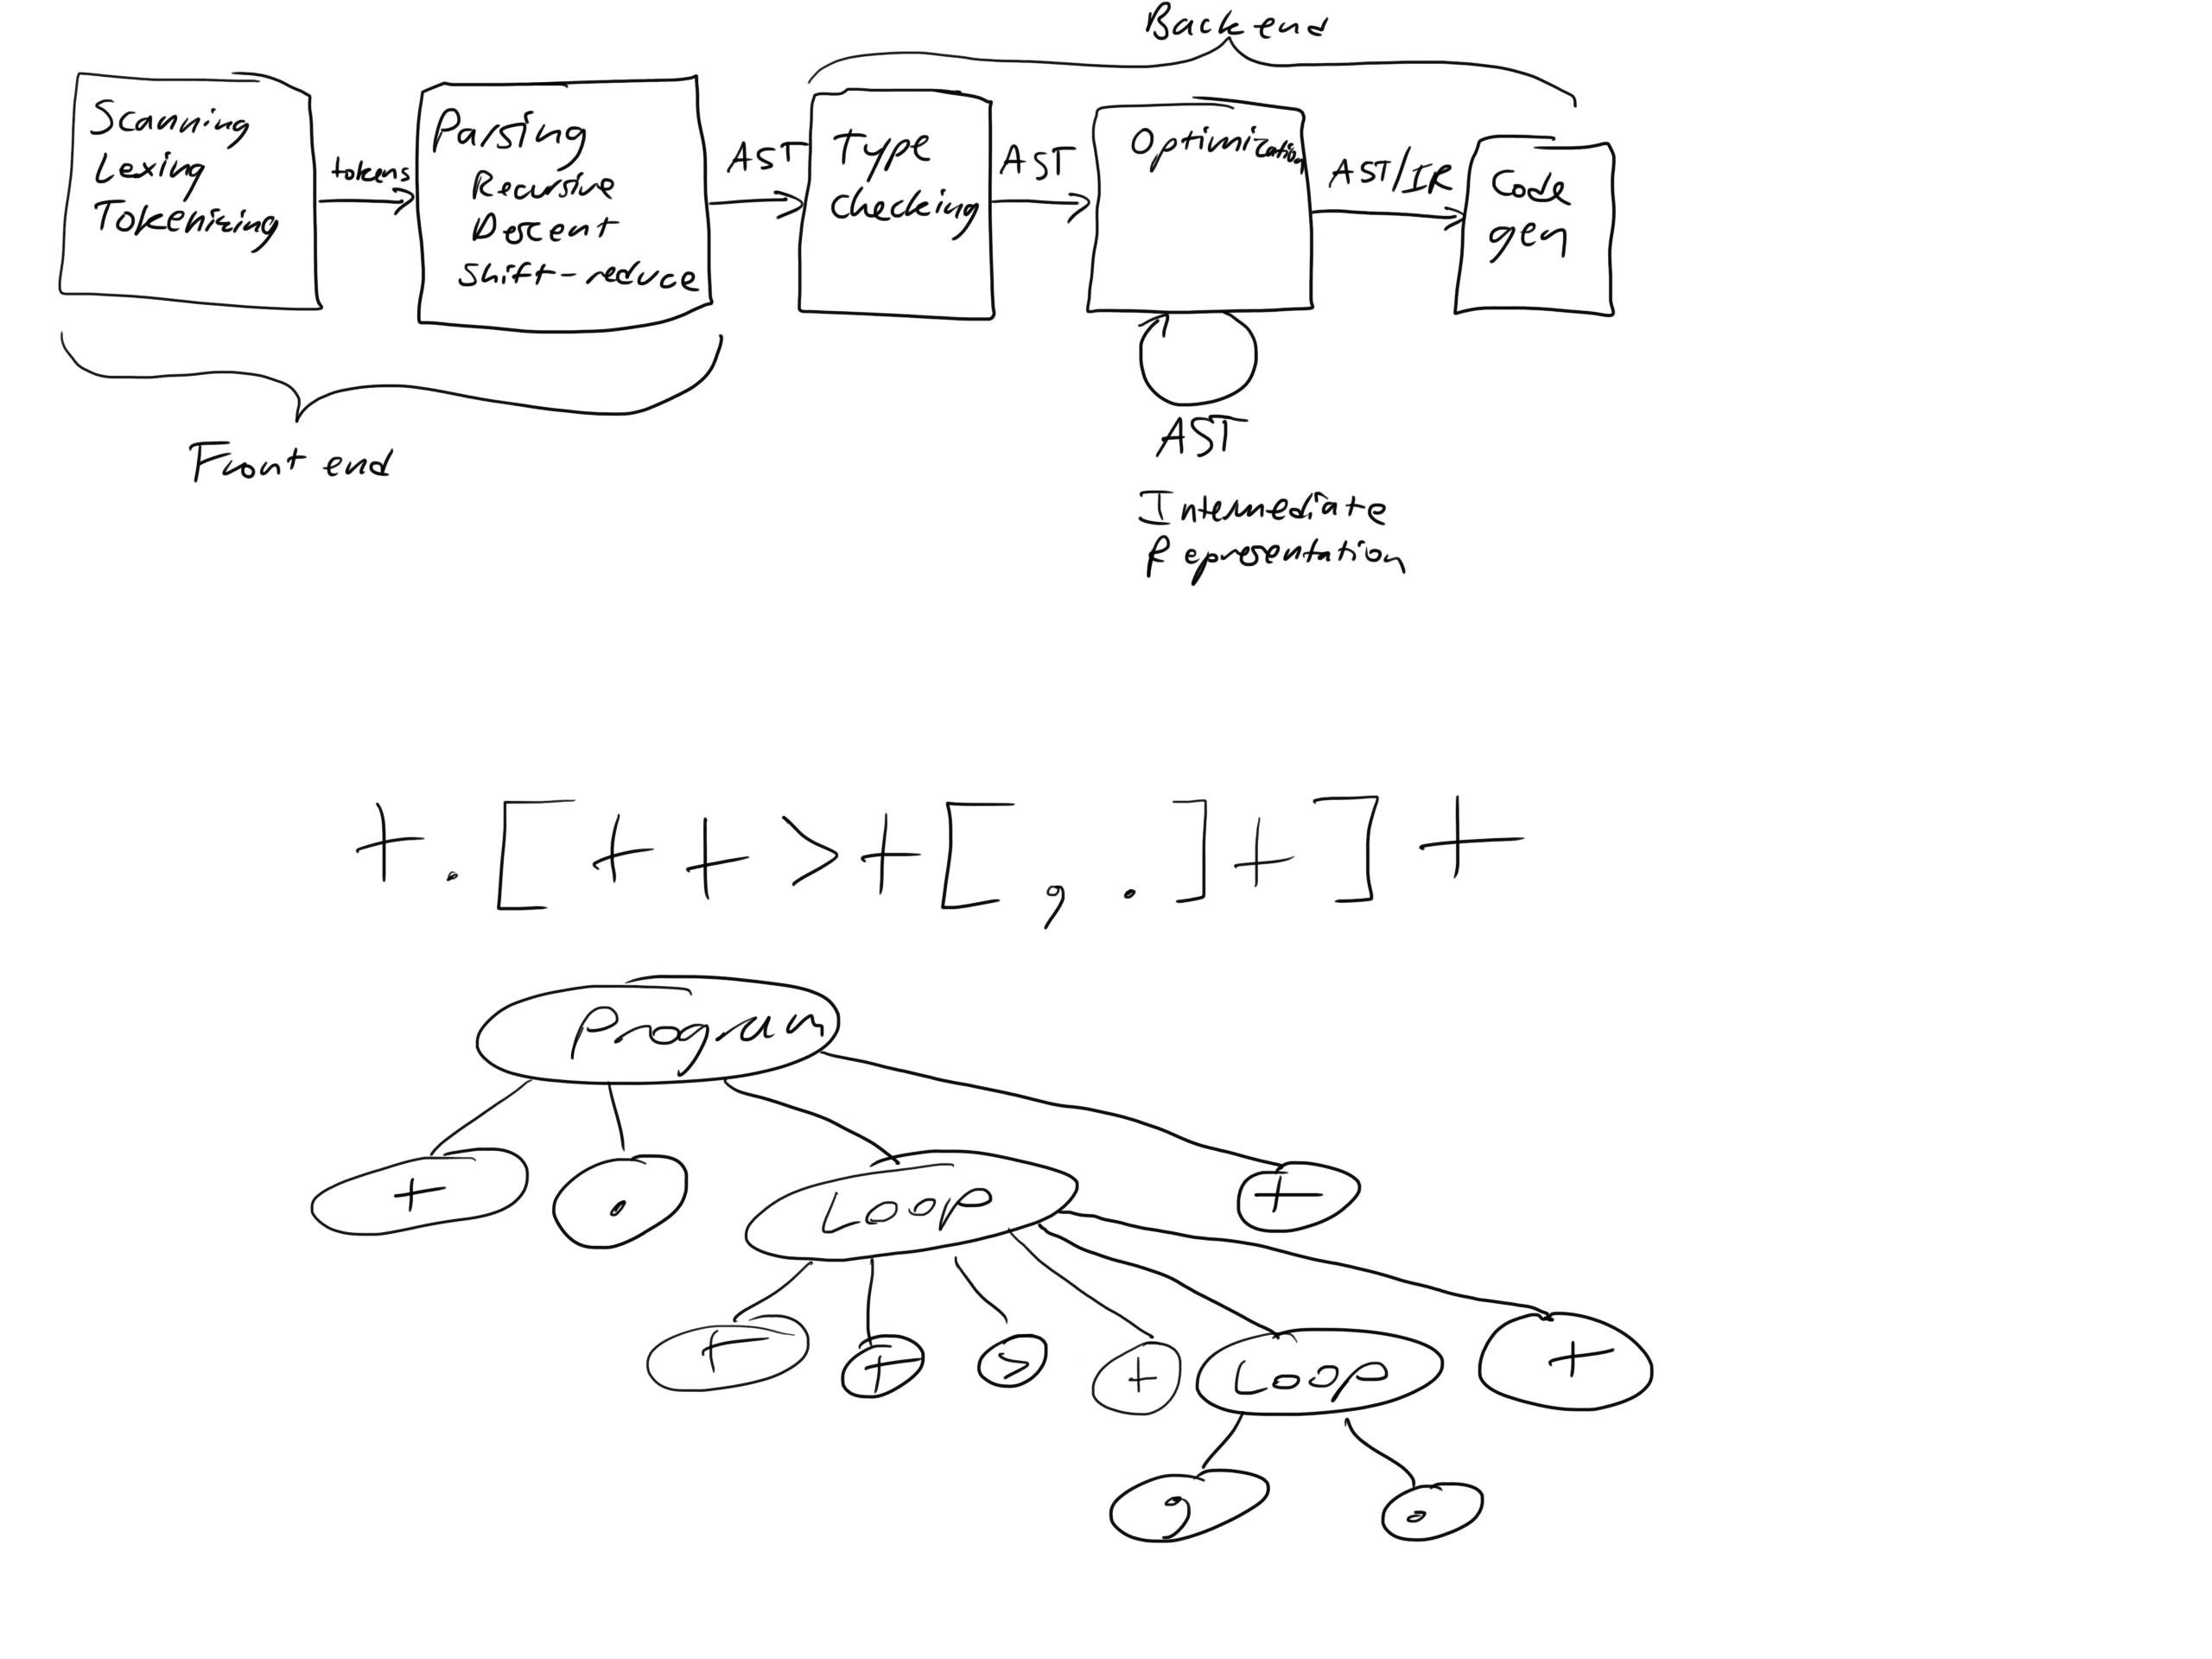 Backend
Scanning
Lexing
Tokenizing
tokens
Parsing
Recursive
Descent
Shift-reduce
AST
Type
checking
AST
Optimization
AST/IR
Code
gen
Front end
AST
Intermediate
Representation
+.[++>+[,.]+]+
Program
+ . Loop +
+ + > + Loop +
, .